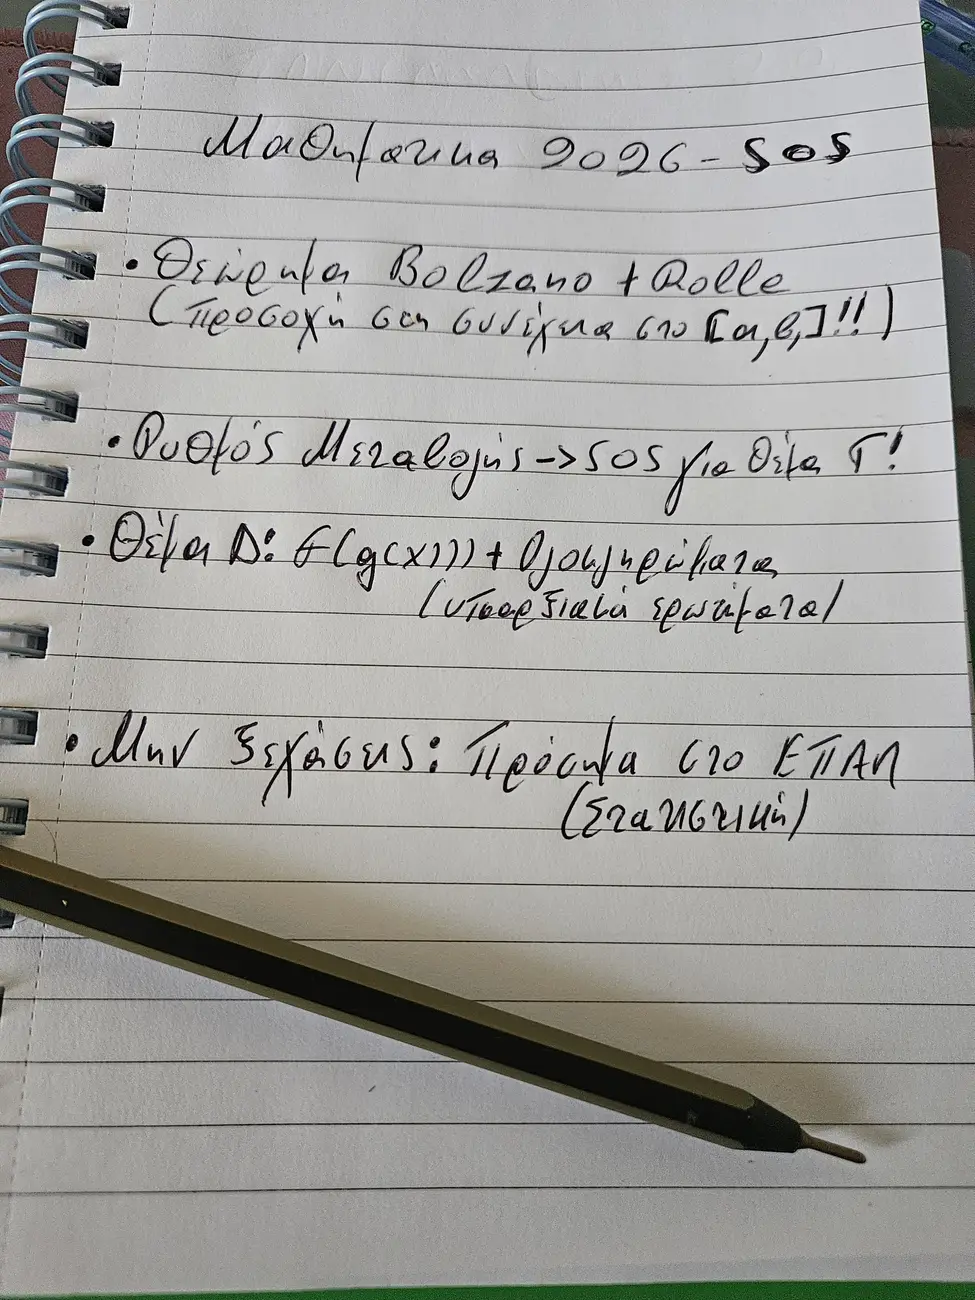 Μαθηματικα 2026 - SOS
• Θεώρημα Bolzano + Rolle
(Προσοχή στη συνέχεια στο [α,β,]!!)
• Ρυθμός Μεταβολής -> SOS για Θέμα Γ!
• Θέμα Δ: f(g(x))) + Ολοκληρώματα
(υπαρξιακά ερωτήματα)
• Μην ξεχάσεις: Πρόσημα στο ΕΠΑΛ
(Στατιστική)